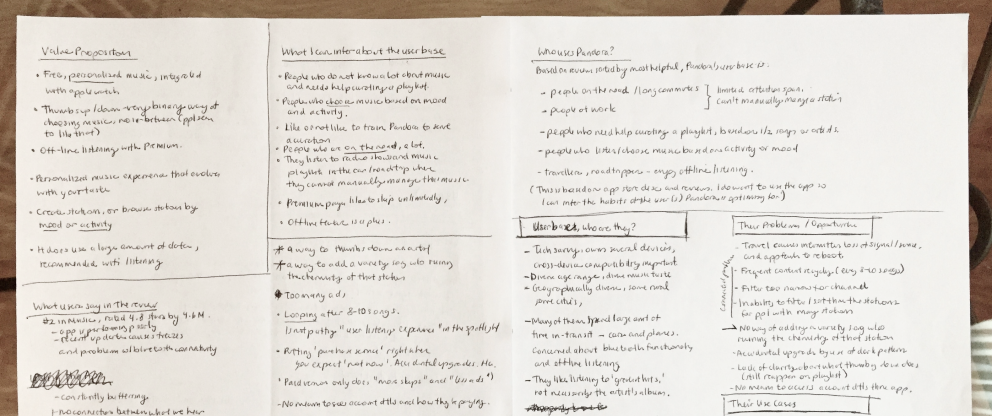 Value Proposition
• Free, personalized music, integrated
with apple watch
• Thumbs up/down - very binary way of
choosing music, no in-between (ppl seem
to like that)
• Off-line listening with Premium.
• Personalized music experience that evolves
with your taste
• Create stations, or browse stations by
mood or activity
• It does use a large amount of data,
recommended wifi listening
What users say in the review
#2 in Music, rated 4.8 stars by 4.6M.
- app is performing poorly
- recent update causes freezes
and problem with bluetooth connectivity
- constantly buffering,
- no connection between what we hear
What I can infer about the user base
• People who do not know a lot about music
and needs help curating a playlist.
• People who choose music based on mood
and activity.
• Like or not like to train Pandora to serve
a curation
• People who are on the road, a lot.
• They listen to radio shows and music
playlist in the car/road trip where
they cannot manually manage their music
• Premium ppl like to skip unlimitedly,
• Offline feature is a plus.
* a way to thumbs down an artist
* a way to add a variety w/o ruining
the chemistry of that station
* Too many ads
• Looping after 8-10 songs.
is not putting "user listening experience" in the spotlight
• Putting 'purchase screens' right where
you expect 'not now'. Accidental upgrades.
• Paid version only does "more skips" and "less ads")
- No means to see account dtls and how they're paying.
Who uses Pandora?
Based on reviews sorted by most helpful, Pandora's user base is:
- people on the road / long commutes
- people at work
limited attention span.
can't manually manage a station
- people who need help curating a playlist, based on 1/2 songs or artists.
- people who listen/choose music based on activity or mood
- travellers, roadtrippers - enjoy offline listening.
(This is based on app store descr and reviews. I do want to use the app so
I can infer the habits of the user(s) Pandora is optimizing for)
User bases, who are they?
- Tech savvy, owns several devices,
cross-device compatibility important
- Diverse age range, diverse music taste
- Geographically diverse, some rural
some cities,
- Many of them spend large amt of
time in-transit - cars and planes.
Concerned about bluetooth functionality
and offline listening
- They like listening to 'greatest hits,'
not necessarily the artist's albums.
Their Problems / Opportunities
- Travel causes intermittent loss of signal / service,
and app tends to reboot
- Frequent content recycling (every 8-10 songs)
- Filter too narrow for channel
- Inability to filter / sort thru the stations
for ppl with many stations
→ No way of adding variety w/o
ruining the chemistry of that station
- Accidental upgrades by use of dark patterns
- Lack of clarity about what thumbs down does
(still reappear on playlist)
- No means to access account dtls thru app.
Their Use Cases